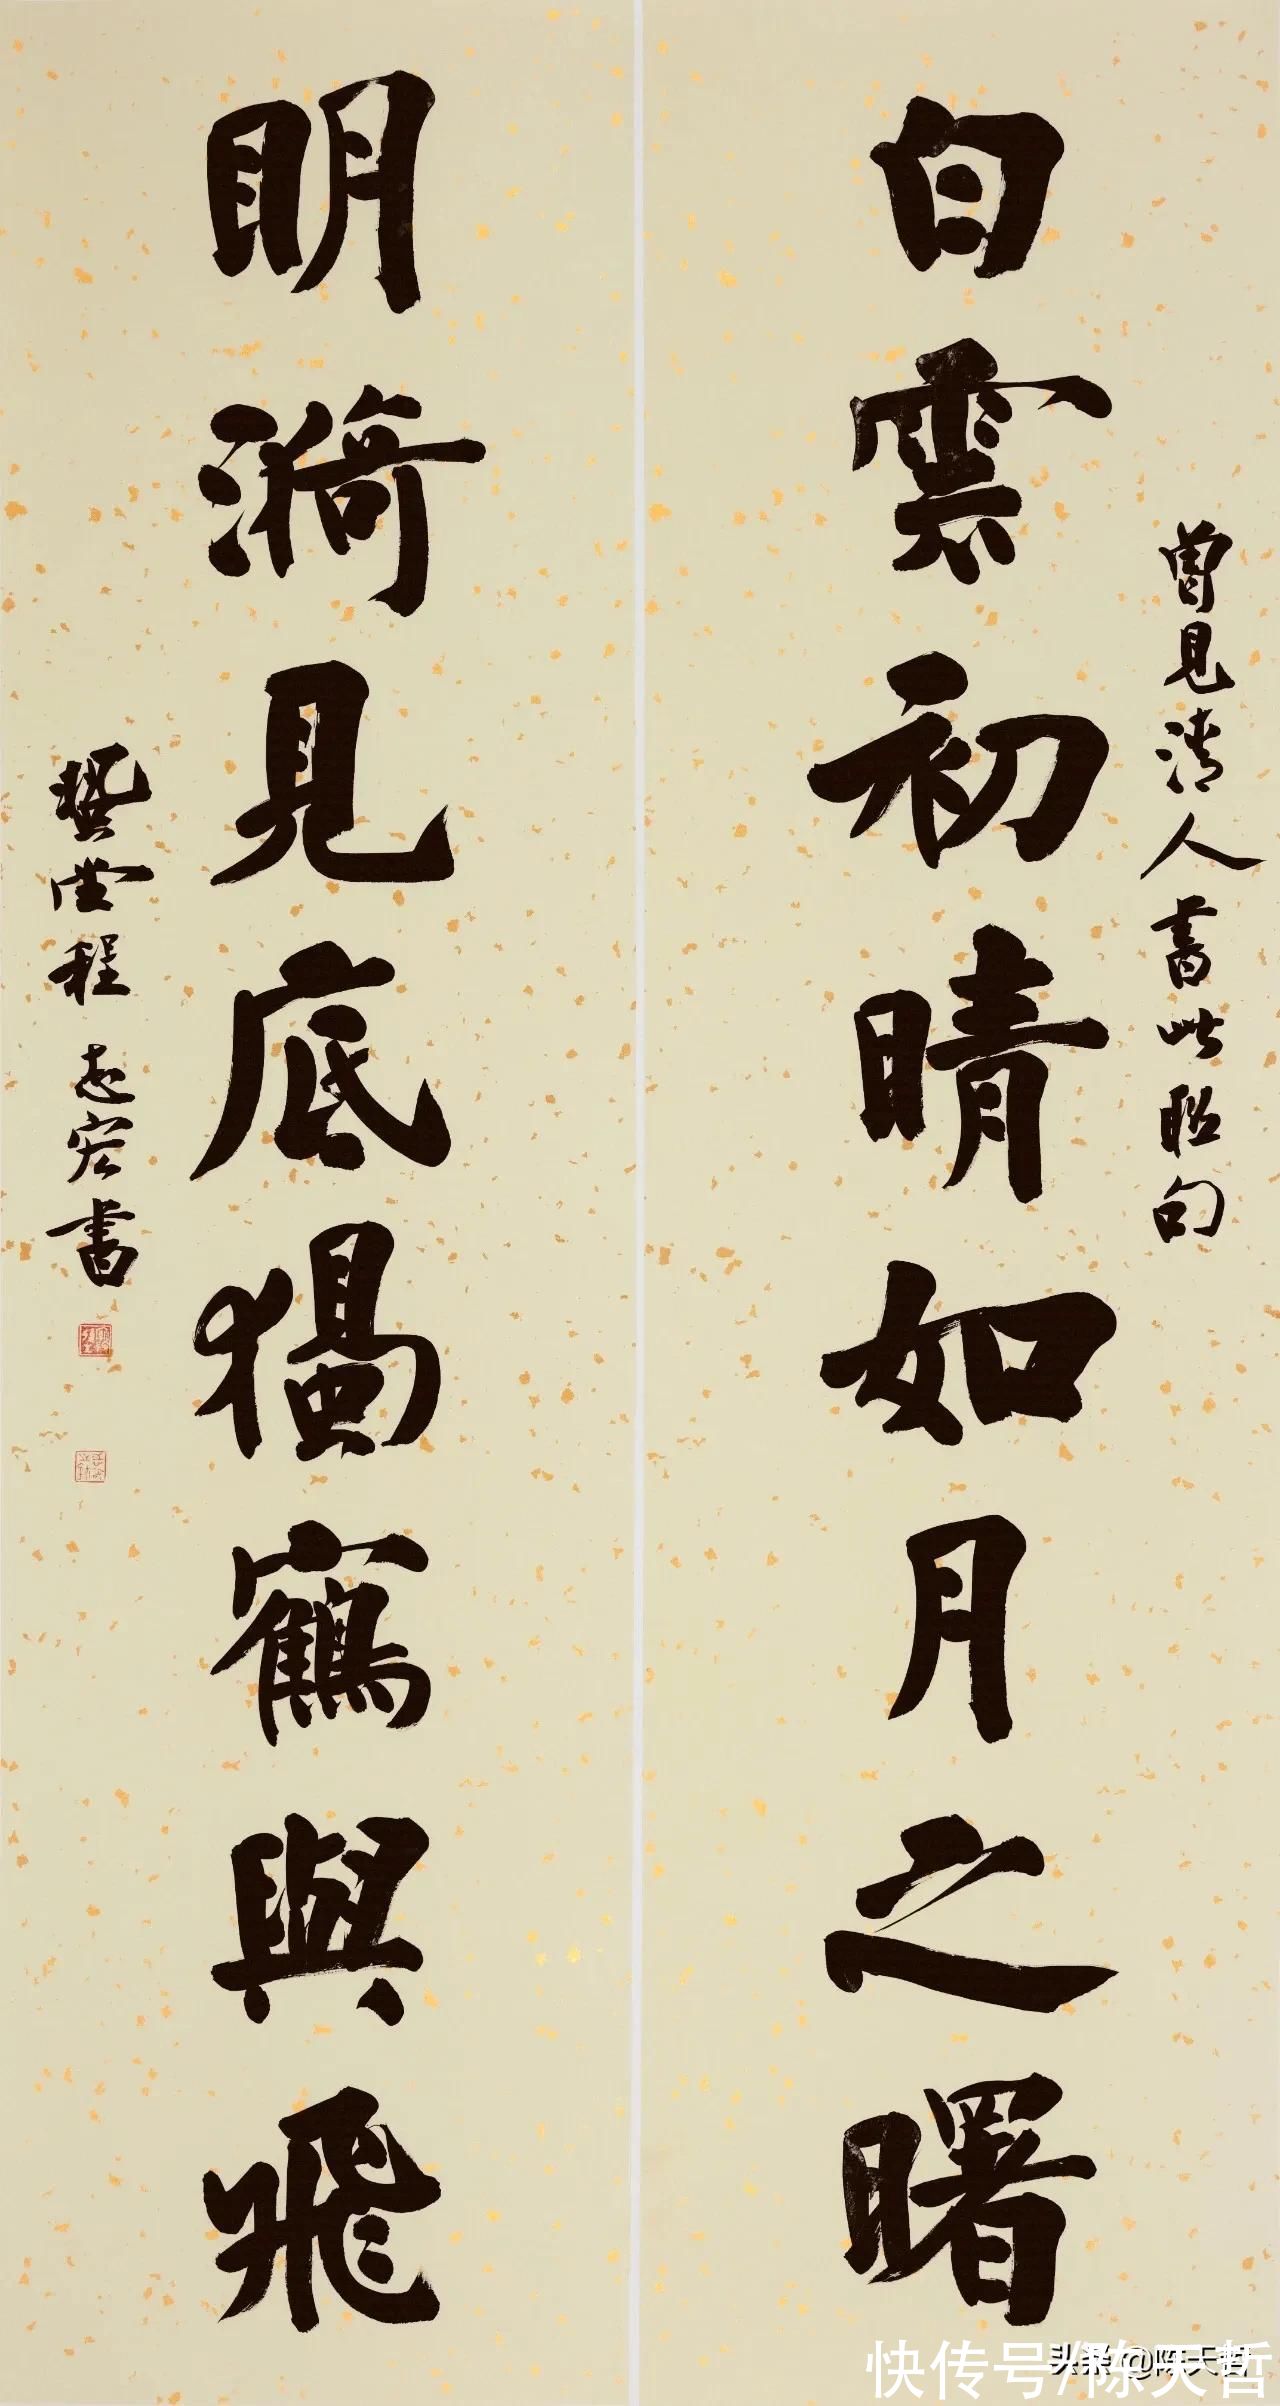 曾見清人書此联句
白雲初晴如月之曙
眀漪見底獨鶴與飛
堂程志宏書
快传号/陈天哲
头条 @陈天哲